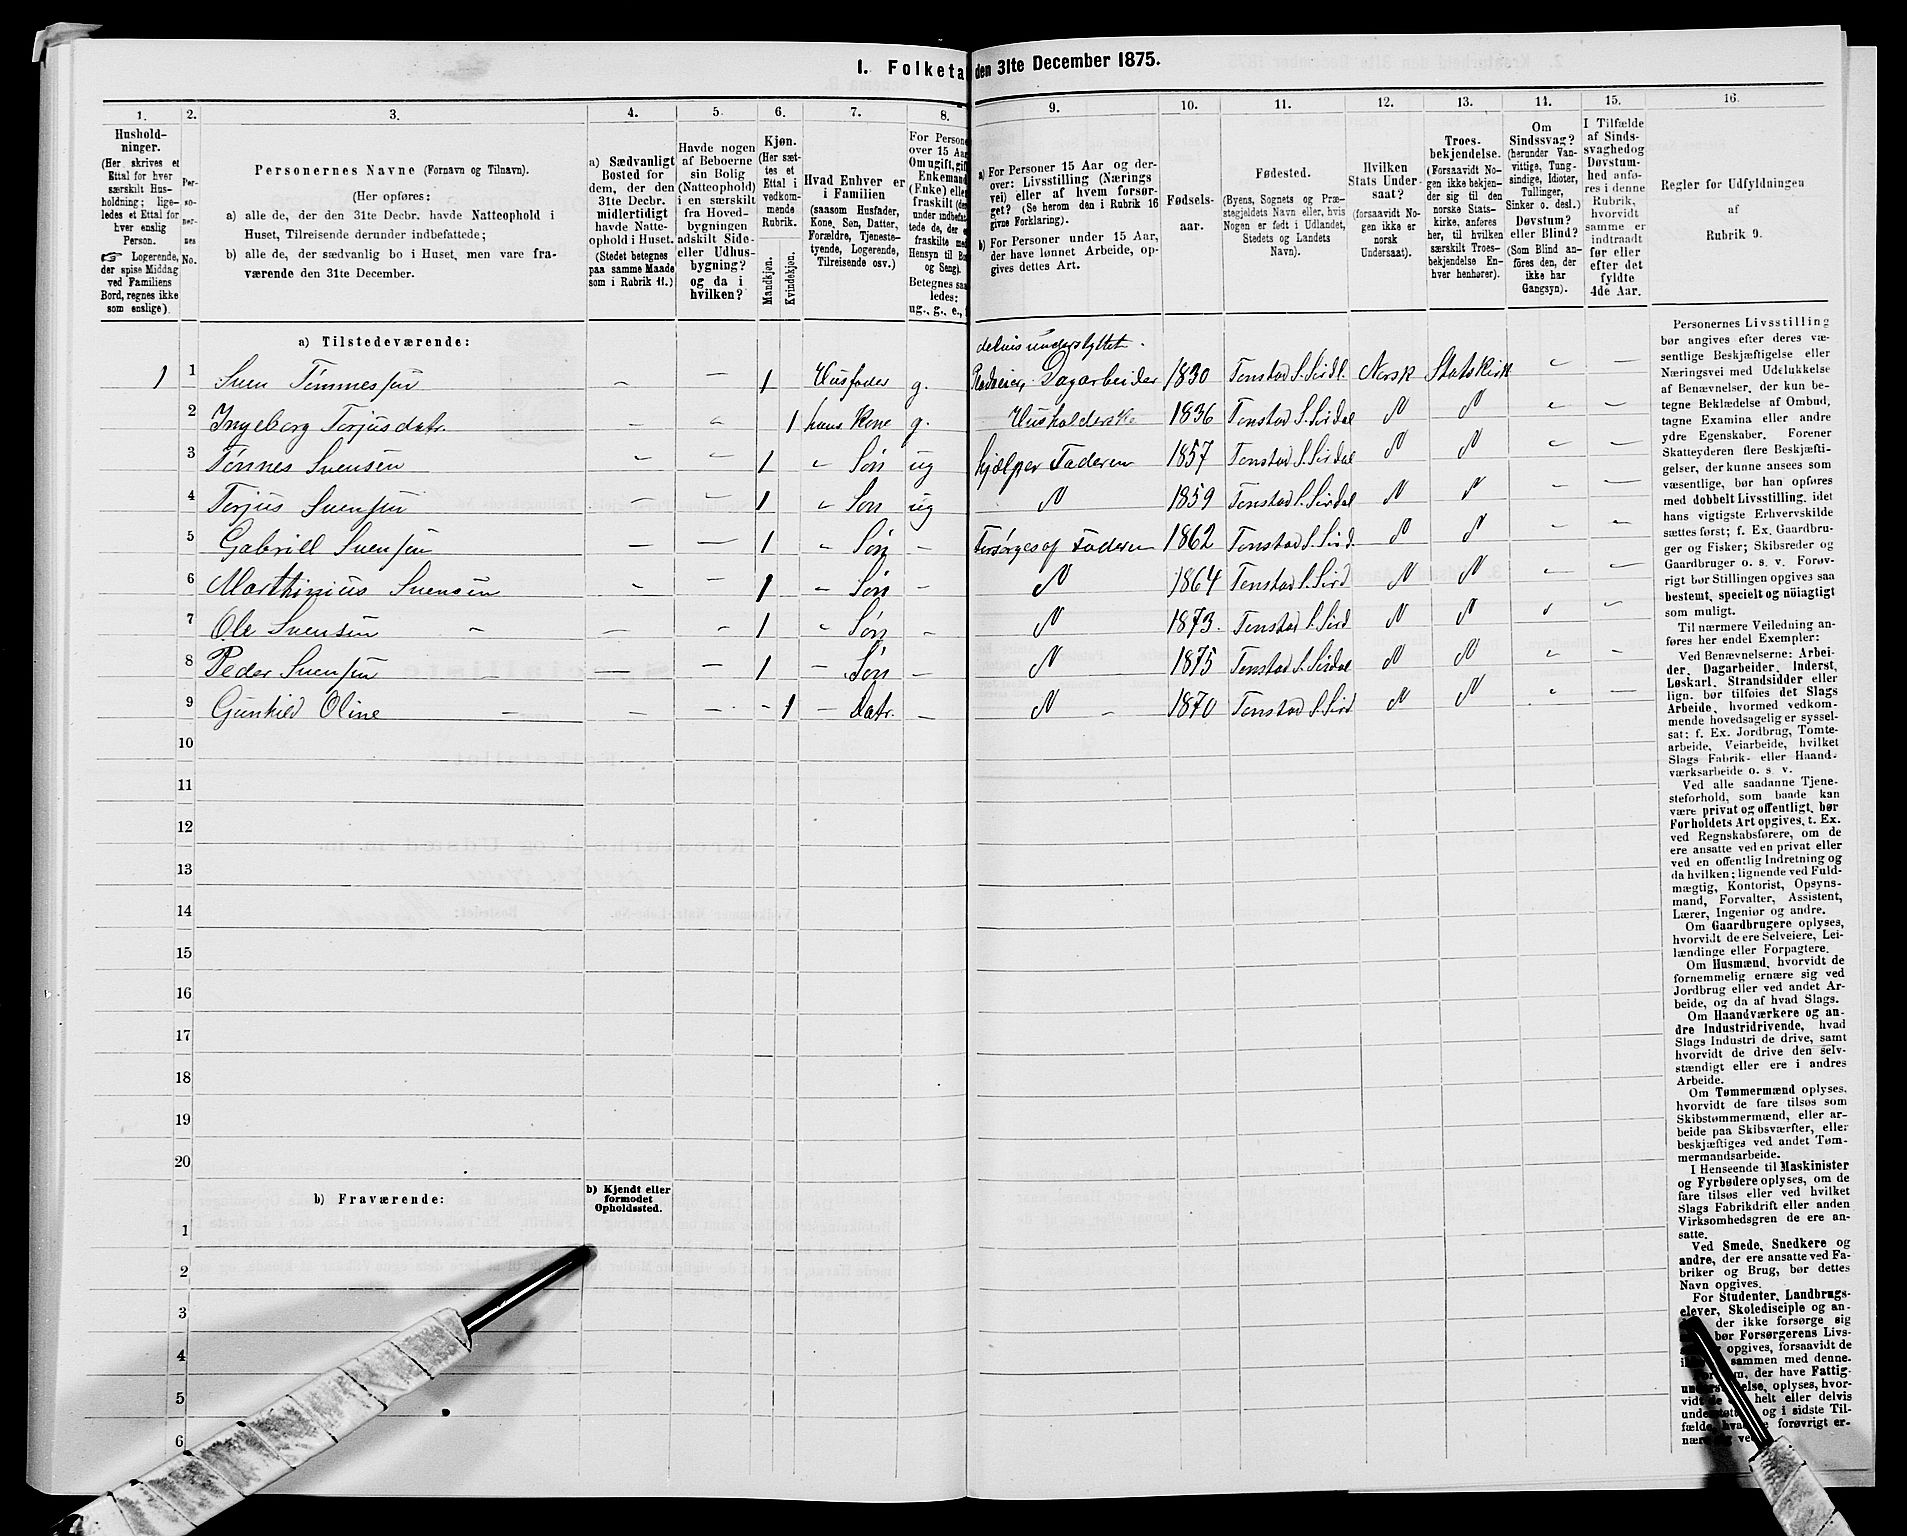 I. Folketa den 31te December 1875.
1. 2. 3. 4. 5. 6. 7. 8. 9. 10. 11. 12. 13. 14. 15. 16.
Hushold-
ninger.
(Her skrives et
Ettal for hver
særskilt Hus-
holdning; lige-
ledes et Ettal for
hver enslig
Person.
☞ Logerende,
der spise Middag
ved Familiens
Bord, regnes ikke
som enslige).
Per-
so-
ner-
nes
No.
Personernes Navne (Fornavn og Tilnavn).
(Her opføres:
a) alle de, der den 31te Decbr. havde Natteophold i
Huset, Tilreisende derunder indbefattede;
b) alle de, der sædvanlig bo i Huset, men vare fra-
værende den 31te December.
a) Sædvanligt
Bosted for
dem, der den
31te Decbr.
midlertidigt
havde Natte-
ophold i Huset.
(Stedet betegnes
paa samme Maade
som i Rubrik 11.)
Havde nogen
af Beboerne
sin Bolig
(Natteophold)
i en særskilt
fra Hoved-
bygningen
adskilt Side-
eller Udhus-
bygning?
og da i
hvilken?
Kjøn.
(Her sæt-
tes et
Ettal i
vedkom-
mende
Rubrik.
Mandkjøn.
Kvindekjøn.
Hvad Enhver er
i Familien
(saasom Husfader,
Kone, Søn, Datter,
Forældre, Tjeneste-
tyende, Logerende,
Tilreisende osv.)
For Persone
over 15 Aar
Om ugift, gift
Enkemand
(Enke) elle
fraskilt (der-
under indbefat-
tede de, de
fraskilte me
Hensyn til Bo
og Seng).
Betegnes saa
ledes:
ug., g., e.,
a) For Personer 15 Aar og der-
over: Livsstilling (Nærings
vei) eller af hvem forsør-
get? (Se herom den i Rubrik 16
givne Forklaring).
b) For Personer under 15 Aar,
der have lønnet Arbeide, op-
gives dettes Art.
Fødsels-
aar.
Fødested.
(Byens, Sognets og Præ-
stegjeldets Navn eller, hvis
Nogen er født i Udlandet,
Stedets og Landets
Navn).
Hvilken
Stats Under-
saat?
(forsaavidt No-
gen ikke er
norsk
Undersaat).
Troes-
bekjendelse.
(Forsaavidt No-
gen ikke bekjen-
der sig til den
norske Stats-
kirke, anføres
her, til hvilken
særskilt Troes-
bekjendelse En-
hver henhører).
Om
Sindssvag?
(herunder Van-
vittige, Tung-
sindige, Idioter,
Tullinger,
Sinker o. desl.)
Døvstum?
eller Blind?
(Som Blind an-
føres den, der
ikke har
Gangsyn).
I Tilfælde
af Sinds-
svaghed og
Døvstum-
hed anfø-
res i denne
Rubrik,
hvorvidt
samme er
indtraadt
før eller
efter det
fyldte
4de Aar.
Regler for Udfyldningen
af
Rubrik 9.
a) Tilstedeværende:
delvis understyttet.
1 1 Sven Tønnessen – – 1 Husfader g. Dagarbeider 1830 Tonstad S. Sirdl. Norsk Statskirk – –
2 Ingeborg Torjusdatr. – – 1 hans Kone g. Husholderske 1836 Tonstad S. Sirdal N N – –
3 Tønnes Svensen – – 1 – Søn ug hjælper Faderen 1857 Tonstad S. Sirdal N N – –
4 Torjus Svensen – – 1 – Søn ug N 1859 Tonstad S. Sirdal N N – –
5 Gabriell Svensen – – 1 – Søn – Forsørges af Faderen 1862 Tonstad S. Sird. N N – –
6 Marthinius Svensen – – 1 – Søn – N 1864 Tonstad S. Sird N N – –
7 Ole Svensen – – – 1 – Søn – N 1873. Tonstad S. Sird N N – –
8 Peder Svensen – – – 1 – Søn – N 1875 Tonstad S. Sirdal N N – –
9 Gunhild Oline – – – – 1 – Datr. – N – 1870 Tonstad S. Sird N N – –
10
11
12
13
14
15
16
17
18
19
20
b) Fraværende:
b) Kjendt eller
formodet
Opholdssted.
1
2
3
4
5
6
Personernes Livsstilling
bør angives efter deres væ-
sentlige Beskjæftigelse eller
Næringsvei med Udelukkelse
af Benævnelser, der kun be-
tegne Beklædelse af Ombud,
tagne Examina eller andre
ydre Egenskaber. Forener
Skatteyderen flere Beskjæfti-
gelser, der kunne ansees som
væsentlige, bør han opføres
med dobbelt Livsstilling, idet
hans vigtigste Erhvervskilde
sættes først; f. Ex. Gaardbru-
ger og Fisker; Skibsreder og
Gaardbruger o. s. v. Forøv-
rigt bør Stillingen opgives saa
bestemt, specielt og nöiagtigt
som muligt.
Til nærmere Veiledning an-
føres her endel Exempler:
Ved Benævnelserne: Arbei-
der, Dagarbeider, Inderst,
Løskarl, Strandsidder eller
lign. bør tilføies det Slags
Arbeide, hvormed vedkom-
mende hovedsagelig er syssel-
sat; f. Ex. Jordbrug, Tomte-
arbeide, Veiarbeide, hvilket
Slags Fabrik- eller Haand-
værksarbeide o. s. v.
Ved alle saadanne Tjene-
steforhold, som baade kan
være privat og offentligt, bør
Forholdets Art opgives, t. Ex.
ved Regnskabsførere, om de
ere ansatte ved en privat eller
ved en offentlig Indretning og
da hvilken; lignende ved Fuld-
mægtig, Kontorist, Opsyns-
mand, Forvalter, Assistent,
Lærer, Ingeniør og andre.
Om Gaardbrugere oplyses,
hvorvidt de ere Selveiere, Lei-
lændinge eller Forpagtere.
Om Husmænd, hvorvidt de
fornemmelig ernære sig ved
Jordbrug eller ved andet Ar-
beide, og da af hvad Slags.
Om Haandværkere og an-
dre Industridrivende, hvad
Slags Industri de drive, samt
hvorvidt de drive den selv-
stændigt eller ere i andres
Arbeide.
Om Tømmermænd oplyses,
hvorvidt de fare tilsøs som
Skibstømmermænd, eller ar-
beide paa Skibsværfter, eller
beskjæftiges ved andet Tøm-
mermandsarbeide.
I Henseende til Maskinister
og Fyrbødere oplyses, om de
fare tilsøs eller ved hvilket
Slags Fabrikdrift eller anden
Virksomhedsgren de ere an-
satte.
Ved Smede, Snedkere og
andre, der ere ansatte ved Fa-
briker og Brug, bør dettes
Navn opgives.
For Studenter, Landbrugs-
elever, Skoledisciple og an-
der ikke forsørge sig
bør Forsørgerens Livs-
opgives, forsaavidt de
sammen med denne.
der have Fattig-
oplyses, hvor-
helt eller delvis
og i sidste Til-
fælde, forøvrigt er-